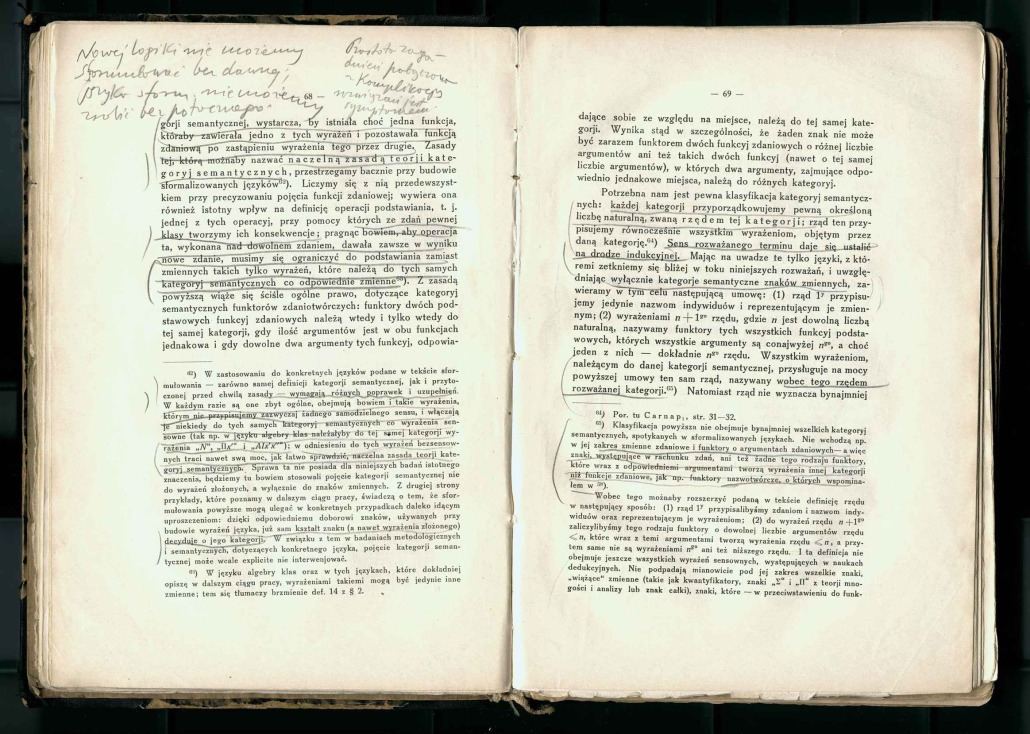 Nowej logiki nie możemy
sformułować bez dawnej;
języka sform. nie możemy
zrobić bez potocznego.
Prostota zaga-
dnień
rozwiązań jest
— 68 —
gorji semantycznej, wystarcza, by istniała choć jedna funkcja,
któraby zawierała jedno z tych wyrażeń i pozostawała funkcją
zdaniową po zastąpieniu wyrażenia tego przez drugie. Zasady
tej, którą możnaby nazwać naczelną zasadą teorji kate-
goryj semantycznych, przestrzegamy bacznie przy budowie
sformalizowanych języków⁶²). Liczymy się z nią przedewszyst-
kiem przy precyzowaniu pojęcia funkcji zdaniowej; wywiera ona
również istotny wpływ na definicję operacji podstawiania, t. j.
jednej z tych operacyj, przy pomocy których ze zdań pewnej
klasy tworzymy ich konsekwencje; pragnąc bowiem, aby operacja
ta, wykonana nad dowolnem zdaniem, dawała zawsze w wyniku
nowe zdanie, musimy się ograniczyć do podstawiania zamiast
zmiennych takich tylko wyrażeń, które należą do tych samych
kategoryj semantycznych co odpowiednie zmienne⁶³). Z zasadą
powyższą wiąże się ściśle ogólne prawo, dotyczące kategoryj
semantycznych funktorów zdaniotwórczych: funktory dwóch pod-
stawowych funkcyj zdaniowych należą wtedy i tylko wtedy do
tej samej kategorji, gdy ilość argumentów jest w obu funkcjach
jednakowa i gdy dowolne dwa argumenty tych funkcyj, odpowia-
⁶²) W zastosowaniu do konkretnych języków podane w tekście sfor-
mułowania — zarówno samej definicji kategorji semantycznej, jak i przyto-
czonej przed chwilą zasady — wymagają różnych poprawek i uzupełnień.
W każdym razie są one zbyt ogólne, obejmują bowiem i takie wyrażenia,
którym nie przypisujemy zazwyczaj żadnego samodzielnego sensu, i włączają
je niekiedy do tych samych kategoryj semantycznych co wyrażenia sen-
sowne (tak np. w języku algebry klas należałyby do tej samej kategorji wy-
rażenia „N", „Πx'" i „AIx'x""); w odniesieniu do tych wyrażeń bezsensow-
nych traci nawet swą moc, jak łatwo sprawdzić, naczelna zasada teorji kate-
goryj semantycznych. Sprawa ta nie posiada dla niniejszych badań istotnego
znaczenia, będziemy tu bowiem stosowali pojęcie kategorji semantycznej nie
do wyrażeń złożonych, a wyłącznie do znaków zmiennych. Z drugiej strony
przykłady, które poznamy w dalszym ciągu pracy, świadczą o tem, że sfor-
mułowania powyższe mogą ulegać w konkretnych przypadkach daleko idącym
uproszczeniom: dzięki odpowiedniemu doborowi znaków, używanych przy
budowie wyrażeń języka, już sam kształt znaku (a nawet wyrażenia złożonego)
decyduje o jego kategorji. W związku z tem w badaniach metodologicznych
i semantycznych, dotyczących konkretnego języka, pojęcie kategorji seman-
tycznej może wcale explicite nie interwenjować.
⁶³) W języku algebry klas oraz w tych językach, które dokładniej
opiszę w dalszym ciągu pracy, wyrażeniami takiemi mogą być jedynie inne
zmienne; tem się tłumaczy brzmienie def. 14 z § 2.
— 69 —
dające sobie ze względu na miejsce, należą do tej samej kate-
gorji. Wynika stąd w szczególności, że żaden znak nie może
być zarazem funktorem dwóch funkcyj zdaniowych o różnej liczbie
argumentów ani też takich dwóch funkcyj (nawet o tej samej
liczbie argumentów), w których dwa argumenty, zajmujące odpo-
wiednio jednakowe miejsca, należą do różnych kategoryj.
Potrzebna nam jest pewna klasyfikacja kategoryj semantycz-
nych: każdej kategorji przyporządkowujemy pewną określoną
liczbę naturalną, zwaną rzędem tej kategorji; rząd ten przy-
pisujemy równocześnie wszystkim wyrażeniom, objętym przez
daną kategorję.⁶⁴) Sens rozważanego terminu daje się ustalić
na drodze indukcyjnej. Mając na uwadze te tylko języki, z któ-
remi zetkniemy się bliżej w toku niniejszych rozważań, i uwzglę-
dniając wyłącznie kategorje semantyczne znaków zmiennych, za-
wieramy w tym celu następującą umowę: (1) rząd 1ʸ przypisu-
jemy jedynie nazwom indywiduów i reprezentującym je zmien-
nym; (2) wyrażeniami n + 1ᵍᵒ rzędu, gdzie n jest dowolną liczbą
naturalną, nazywamy funktory tych wszystkich funkcyj podsta-
wowych, których wszystkie argumenty są conajwyżej nᵍᵒ, a choć
jeden z nich — dokładnie nᵍᵒ rzędu. Wszystkim wyrażeniom,
należącym do danej kategorji semantycznej, przysługuje na mocy
powyższej umowy ten sam rząd, nazywany wobec tego rzędem
rozważanej kategorji.⁶⁵) Natomiast rząd nie wyznacza bynajmniej
⁶⁴) Por. tu Carnap₁, str. 31—32.
⁶⁵) Klasyfikacja powyższa nie obejmuje bynajmniej wszelkich kategoryj
semantycznych, spotykanych w sformalizowanych językach. Nie wchodzą np.
w jej zakres zmienne zdaniowe i funktory o argumentach zdaniowych — a więc
znaki, występujące w rachunku zdań, ani też żadne tego rodzaju funktory,
które wraz z odpowiedniemi argumentami tworzą wyrażenia innej kategorji
niż funkcje zdaniowe, jak np. funktory nazwotwórcze, o których wspomina-
łem w ⁵⁹).
Wobec tego możnaby rozszerzyć podaną w tekście definicję rzędu
w następujący sposób: (1) rząd 1ʸ przypisalibyśmy zdaniom i nazwom indy-
widuów oraz reprezentującym je wyrażeniom; (2) do wyrażeń rzędu n + 1ᵍᵒ
zaliczylibyśmy tego rodzaju funktory o dowolnej liczbie argumentów rzędu
≤ n, które wraz z temi argumentami tworzą wyrażenia rzędu ≤ n, a przy-
tem same nie są wyrażeniami nᵍᵒ ani też niższego rzędu. I ta definicja nie
obejmuje jeszcze wszystkich wyrażeń sensownych, występujących w naukach
dedukcyjnych. Nie podpadają mianowicie pod jej zakres wszelkie znaki,
„wiążące" zmienne (takie jak kwantyfikatory, znaki „Σ" i „Π" z teorji mno-
gości i analizy lub znak całki), znaki, które — w przeciwstawieniu do funk-